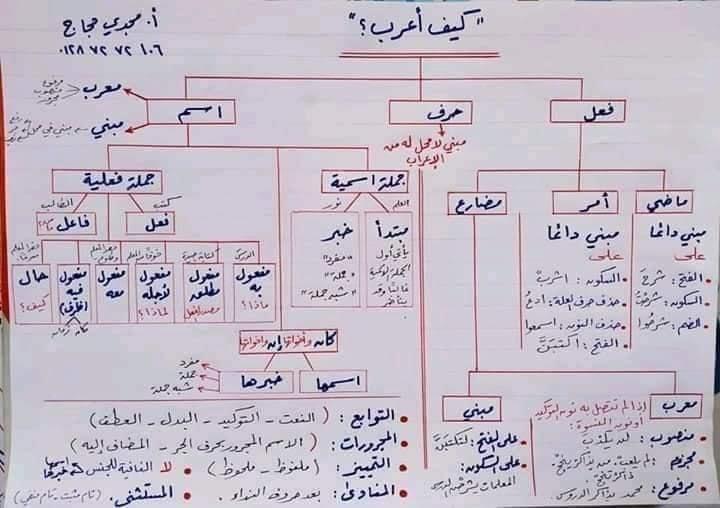 "كيف أعرب ؟"
أ. مجدي حجاج
٠١٢٨ ٧٢ ٧٢ ١٠٦
فعل
حرف
اسم
معرب
مرفوع
منصوب
مجرور
مبني
مبني في محل
مبني لا محل له من
الإعراب
ماضي
أمر
مضارع
مبني دائمًا
على
الفتح: شرحَ
السكون: شرحْتُ
الضم: شرحُوا
مبني دائمًا
على
السكون: اشربْ
حذف حرف العلة: ادعُ
حذف النون: اسمعوا
الفتح: اكتبَنَّ
معرب
إذا لم تتصل به نون التوكيد
أو نون النسوة:
منصوب: لن يكذبَ
مجزوم: لم يلعبْ، من يذاكر ينجحْ
ذاكر تنجحْ
مرفوع: محمد يذاكرُ الدروس
مبني
على الفتح: لتكتبَنَّ
على السكون:
المعلمات يشرحْنَ الدرس
جملة اسمية
العلم
نور
مبتدأ
يأتي أول
الجملة الاسمية
غالبًا وقد
يتأخر
خبر
"مفرد"
"جملة"
"شبه جملة"
جملة فعلية
كتب
الطالب
فعل
فاعل
الدرسَ
كتابة
خوفًا من المعلم
مفعول به
ماذا؟
مفعول مطلق
مصدر الفعل
مفعول لأجله
لماذا؟
مفعول معه
مفعول فيه
(ظرف)
مكان
زمان
حال
كيف؟
كان وأخواتها
إن وأخواتها
اسمها
خبرها
مفرد
جملة
شبه جملة
التوابع: (النعت - التوكيد - البدل - العطف)
المجرورات: (الاسم المجرور بحرف الجر - المضاف إليه)
التمييز: (ملفوظ - ملحوظ)
لا النافية للجنس
اسمها
خبرها
المنادى: بعد حروف النداء.
المستثنى. (تام مثبت - تام منفي)